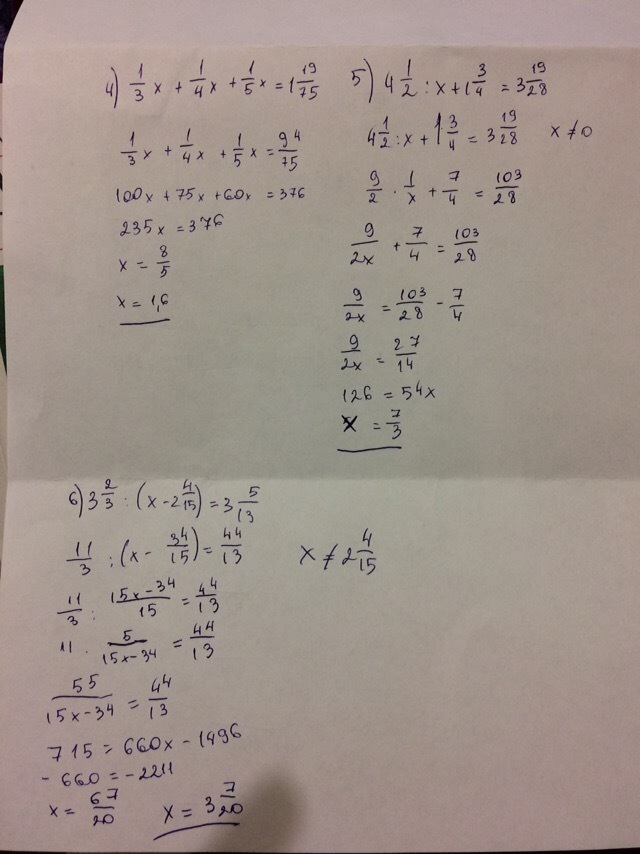 4) 1/3 x + 1/4 x + 1/5 x = 1 19/75
1/3 x + 1/4 x + 1/5 x = 94/75
100x + 75x + 60x = 376
235x = 376
x = 8/5
x = 1,6
5) 4 1/2 : x + 1 3/4 = 3 19/28
4 1/2 : x + 1 3/4 = 3 19/28 x ≠ 0
9/2 · 1/x + 7/4 = 103/28
9/2x + 7/4 = 103/28
9/2x = 103/28 - 7/4
9/2x = 27/14
126 = 54x
x = 7/3
6) 3 2/3 : (x - 2 4/15) = 3 5/13
11/3 : (x - 34/15) = 44/13 x ≠ 2 4/15
11/3 : 15x-34/15 = 44/13
11 · 5/15x-34 = 44/13
55/15x-34 = 44/13
715 = 660x - 1496
- 660 = -2211
x = 67/20 x = 3 7/20